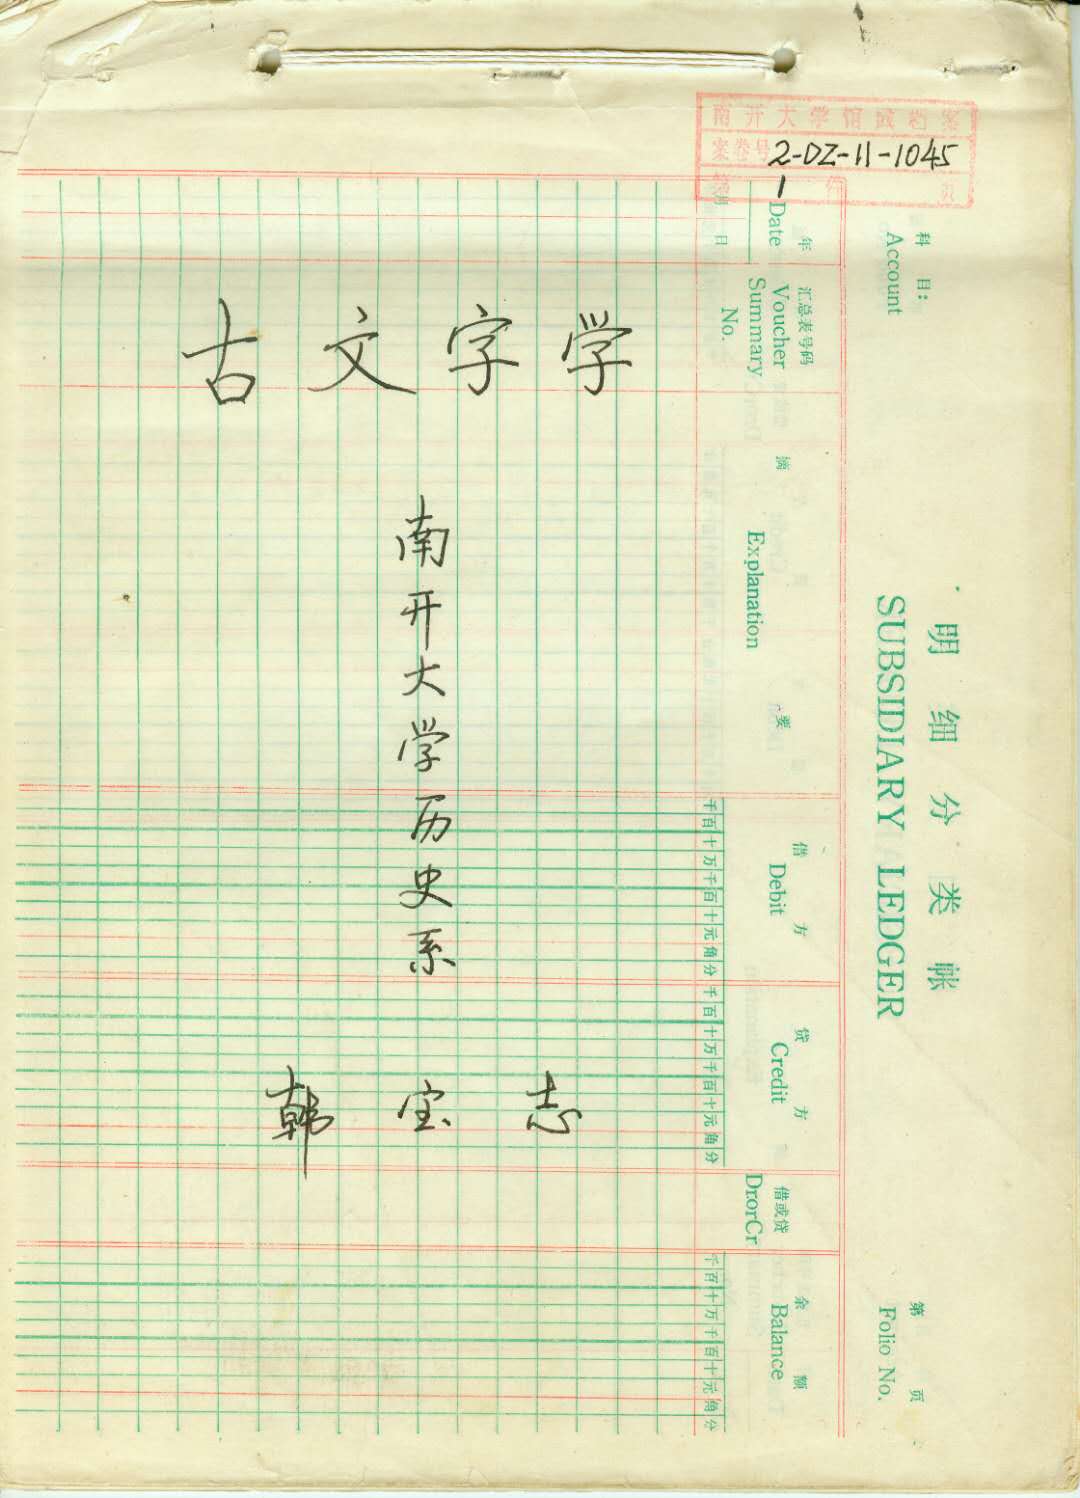 南开大学馆藏档案
案卷号 2-DZ-11-1045
第 1 件 页
古文字学
南开大学历史系
韩宝志
明细分类帐
SUBSIDIARY LEDGER
科目:
Account
第 页
Folio No.
年
Date
月 日
汇总表号码
Voucher
Summary
No.
摘要
Explanation
借方
Debit
千百十万千百十元角分
贷方
Credit
千百十万千百十元角分
借或贷
Dr.orCr
余额
Balance
千百十万千百十元角分